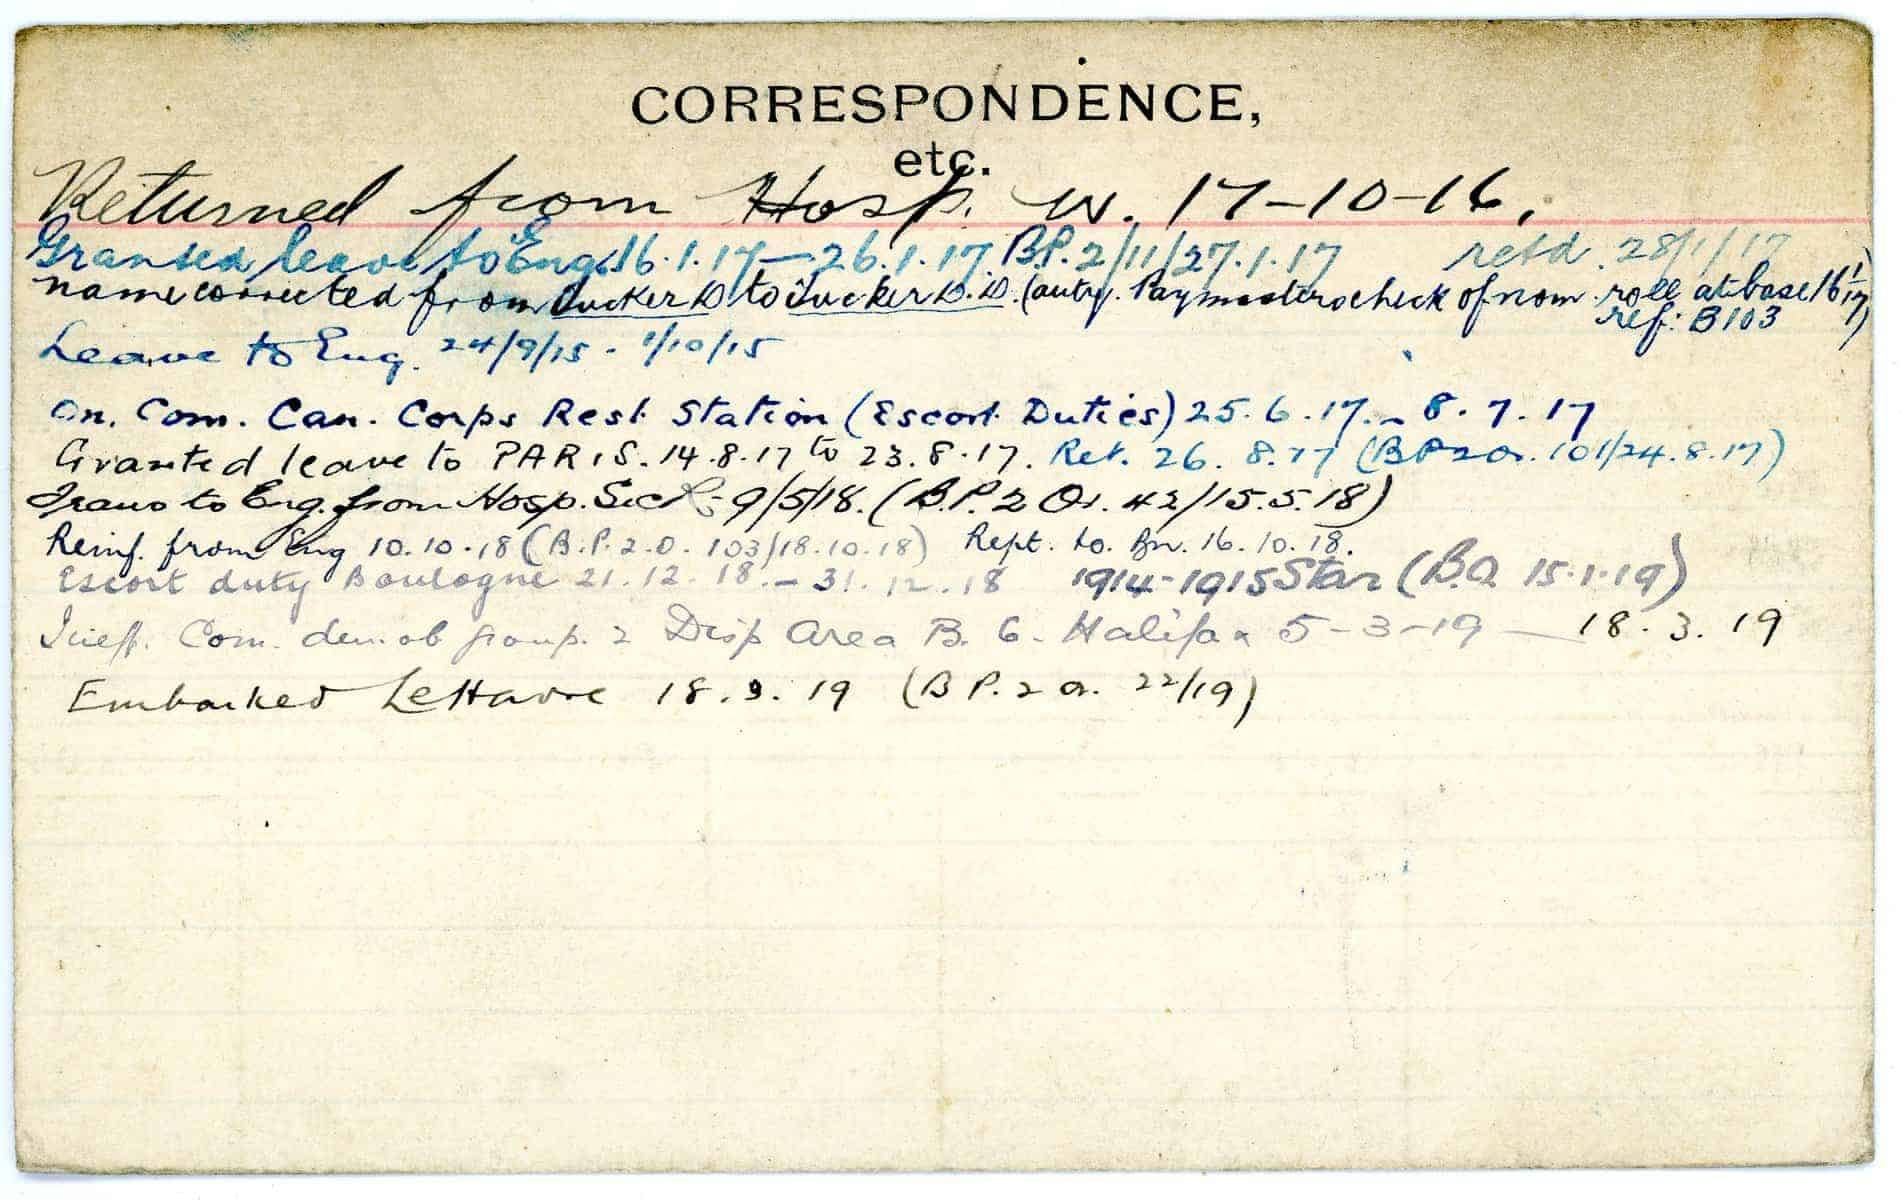 CORRESPONDENCE,
etc.
Returned from Hosp. W. 17-10-16.
Granted leave to Eng. 16.1.17 — 26.1.17 B.P.2/11/27.1.17 retd. 28/1/17
name corrected from Tucker D to Tucker D.D. (auty. Paymasters check of nom. roll at base 16/1/17)
ref: B103
Leave to Eng. 24/9/15 - 1/10/15
On. Com. Can. Corps Rest Station (Escort Duties) 25.6.17. - 8.7.17
Granted leave to PARIS. 14.8.17 to 23.8.17. Ret. 26.8.17 (BP2 O. 101/24.8.17)
Trans to Eng. from Hosp. Sick - 9/5/18. (B.P.2 Or. 42/15.5.18)
Reinf. from Eng 10.10.18 (B.P.2.O. 103/18.10.18) Rept. to. Bn. 16.10.18.
Escort duty Boulogne 21.12.18. - 31.12.18 1914-1915 Star (B.O. 15.1.19)
Com. demob group. 2 Disp Area B. 6- Halifax 5-3-19 — 18.3.19
Embarked LeHavre 18.3.19 (B P.2 O. 22/19)